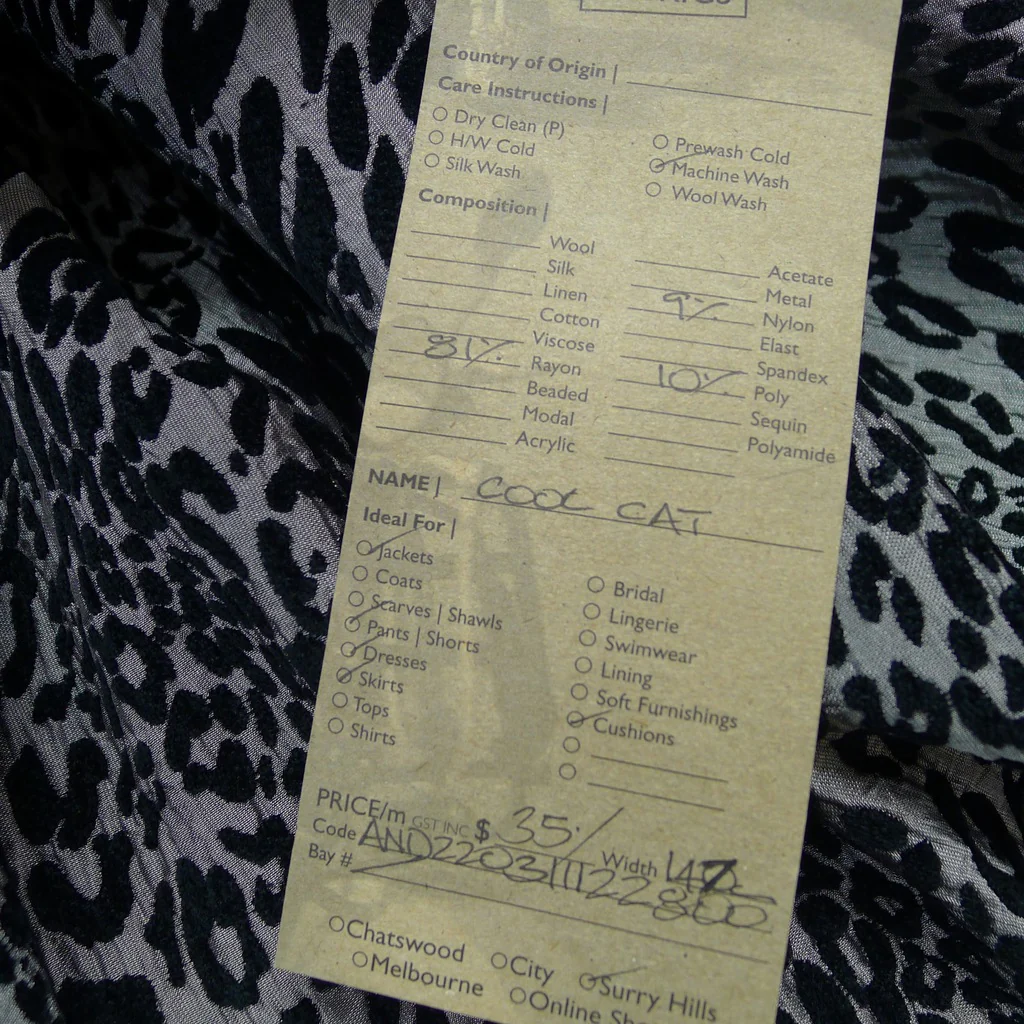 Country of Origin |
Care Instructions |
Dry Clean (P)
H/W Cold
Silk Wash
Prewash Cold
Machine Wash
Wool Wash
Composition |
Wool
Silk
Linen
Cotton
Viscose
81% Rayon
Beaded
Modal
Acrylic
Acetate
Metal
9% Nylon
Elast
Spandex
10% Poly
Sequin
Polyamide
NAME | COOL CAT
Ideal For |
Jackets
Coats
Scarves | Shawls
Pants | Shorts
Dresses
Skirts
Tops
Shirts
Bridal
Lingerie
Swimwear
Lining
Soft Furnishings
Cushions
PRICE/m GST INC $ 35 Width 147
Code
Bay #
Chatswood City Surry Hills
Melbourne Online